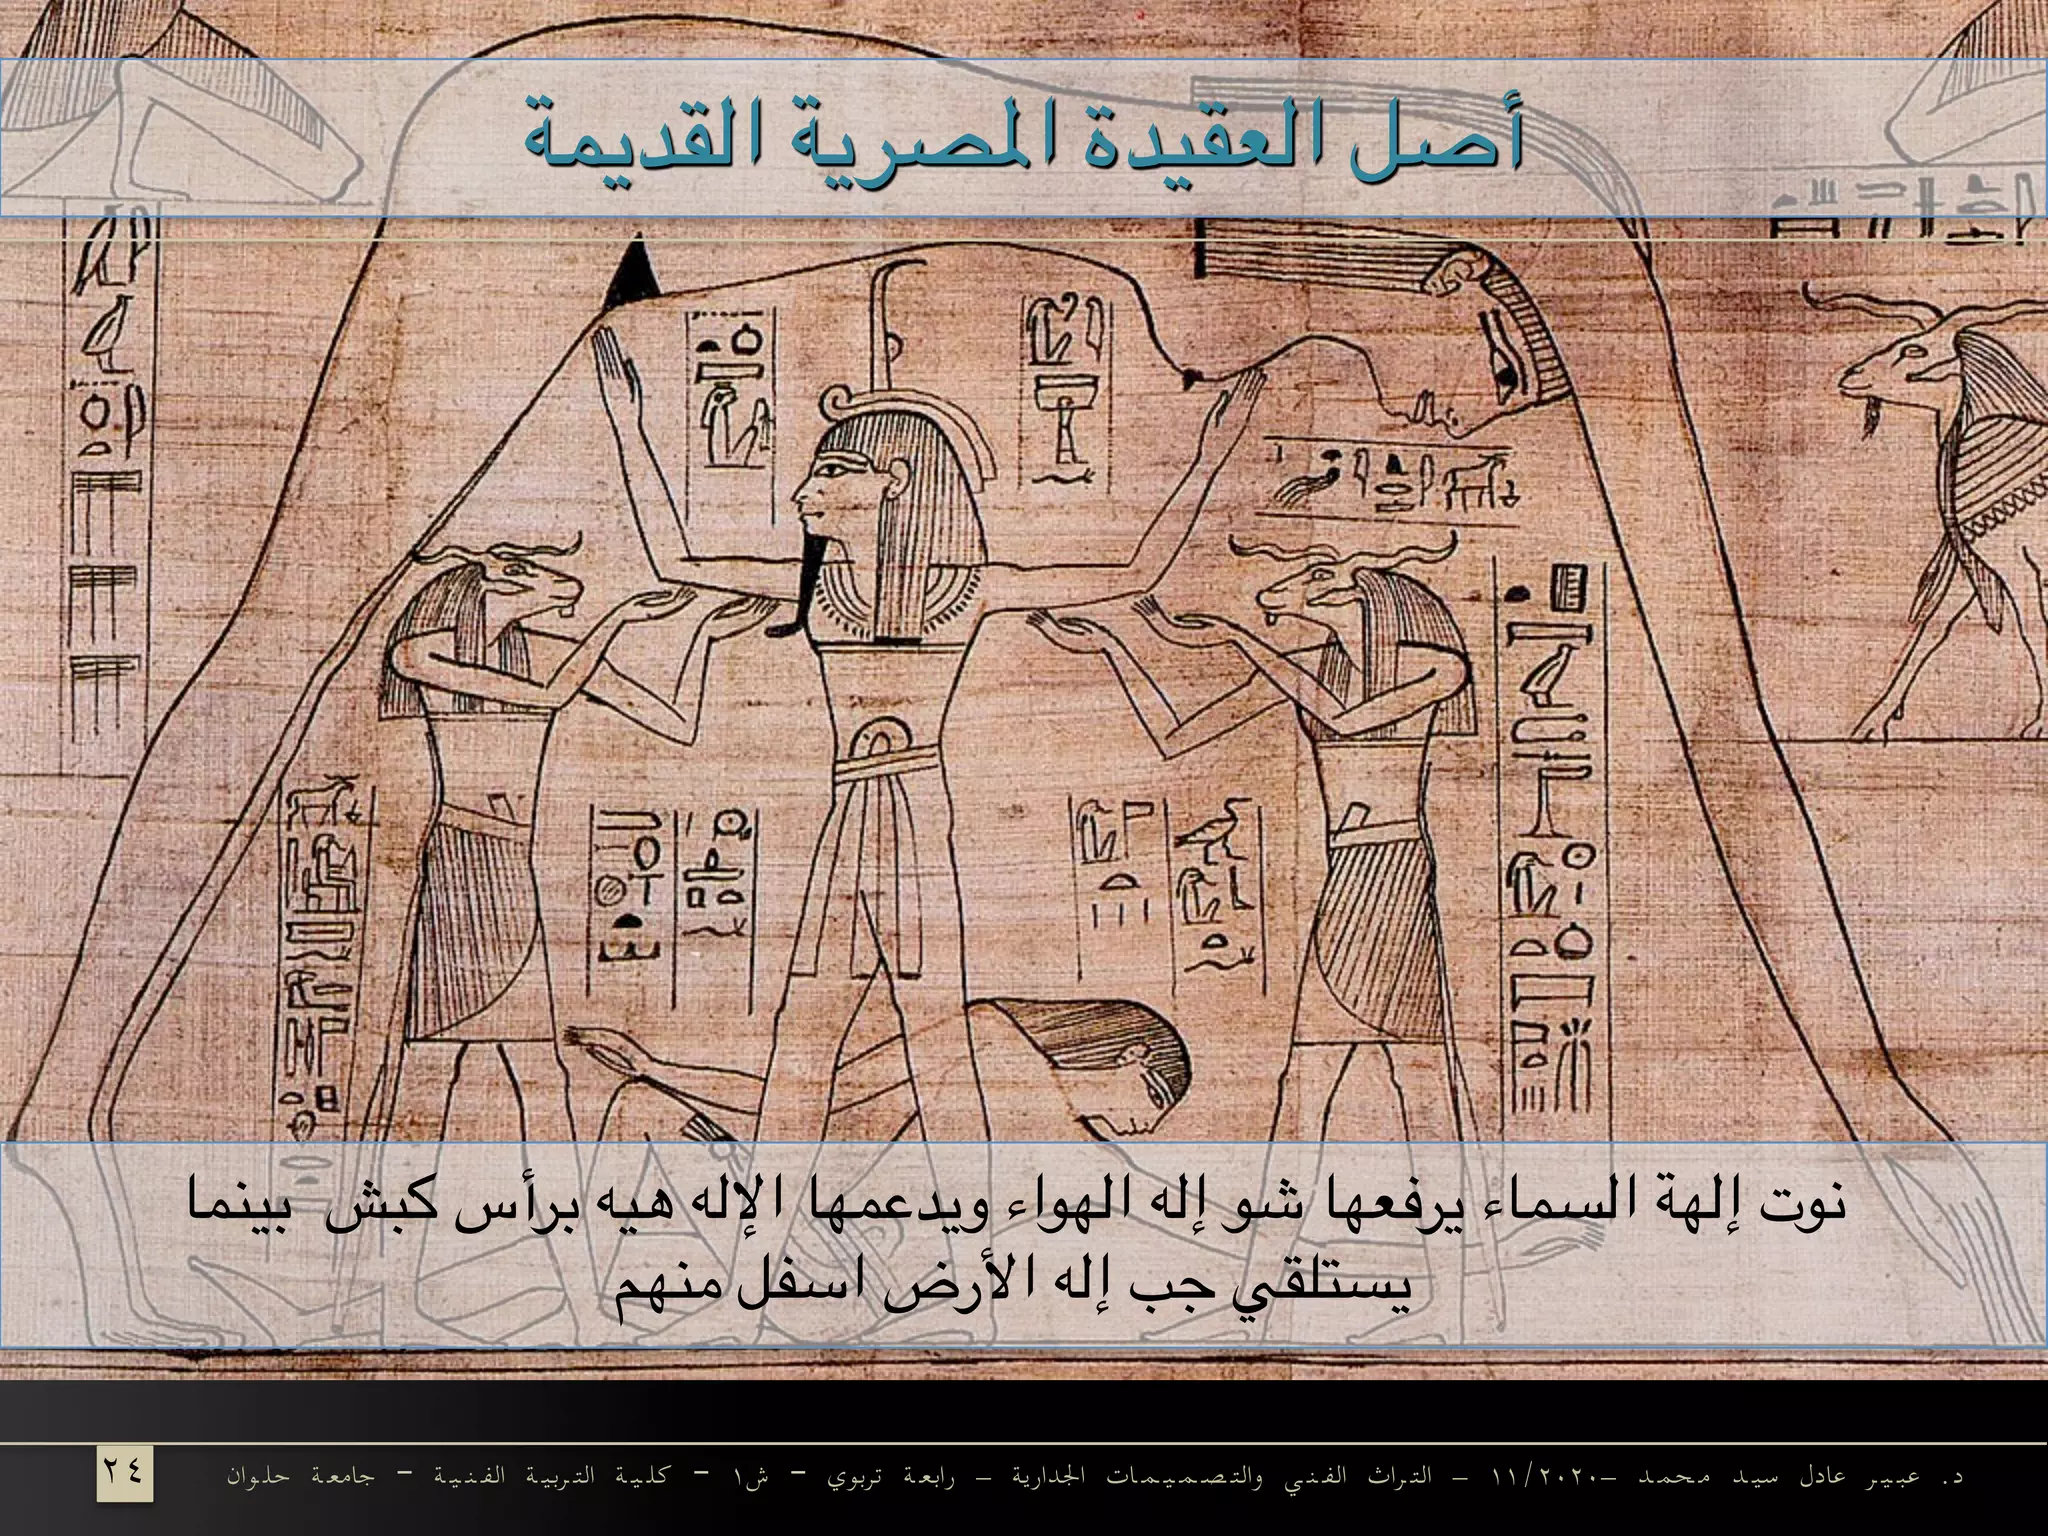 أصل العقيدة المصرية القديمة
نوت إلهة السماء يرفعها شو إله الهواء ويدعمها الإله هيه برأس كبش بينما
يستلقي جب إله الأرض اسفل منهم
د. عبير عادل سيد محمد –١١/٢٠٢٠ – التراث الفني والتصميمات الجدارية – رابعة تربوي - ش١ - كلية التربية الفنية - جامعة حلوان
٢٤